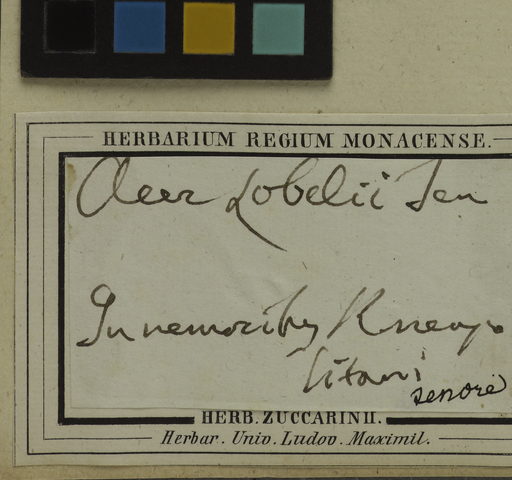 HERBARIUM REGIUM MONACENSE.
Acer Lobelii Ten
In nemoribus
Titani
Tenore
HERB. ZUCCARINII.
Herbar. Univ. Ludov. Maximil.